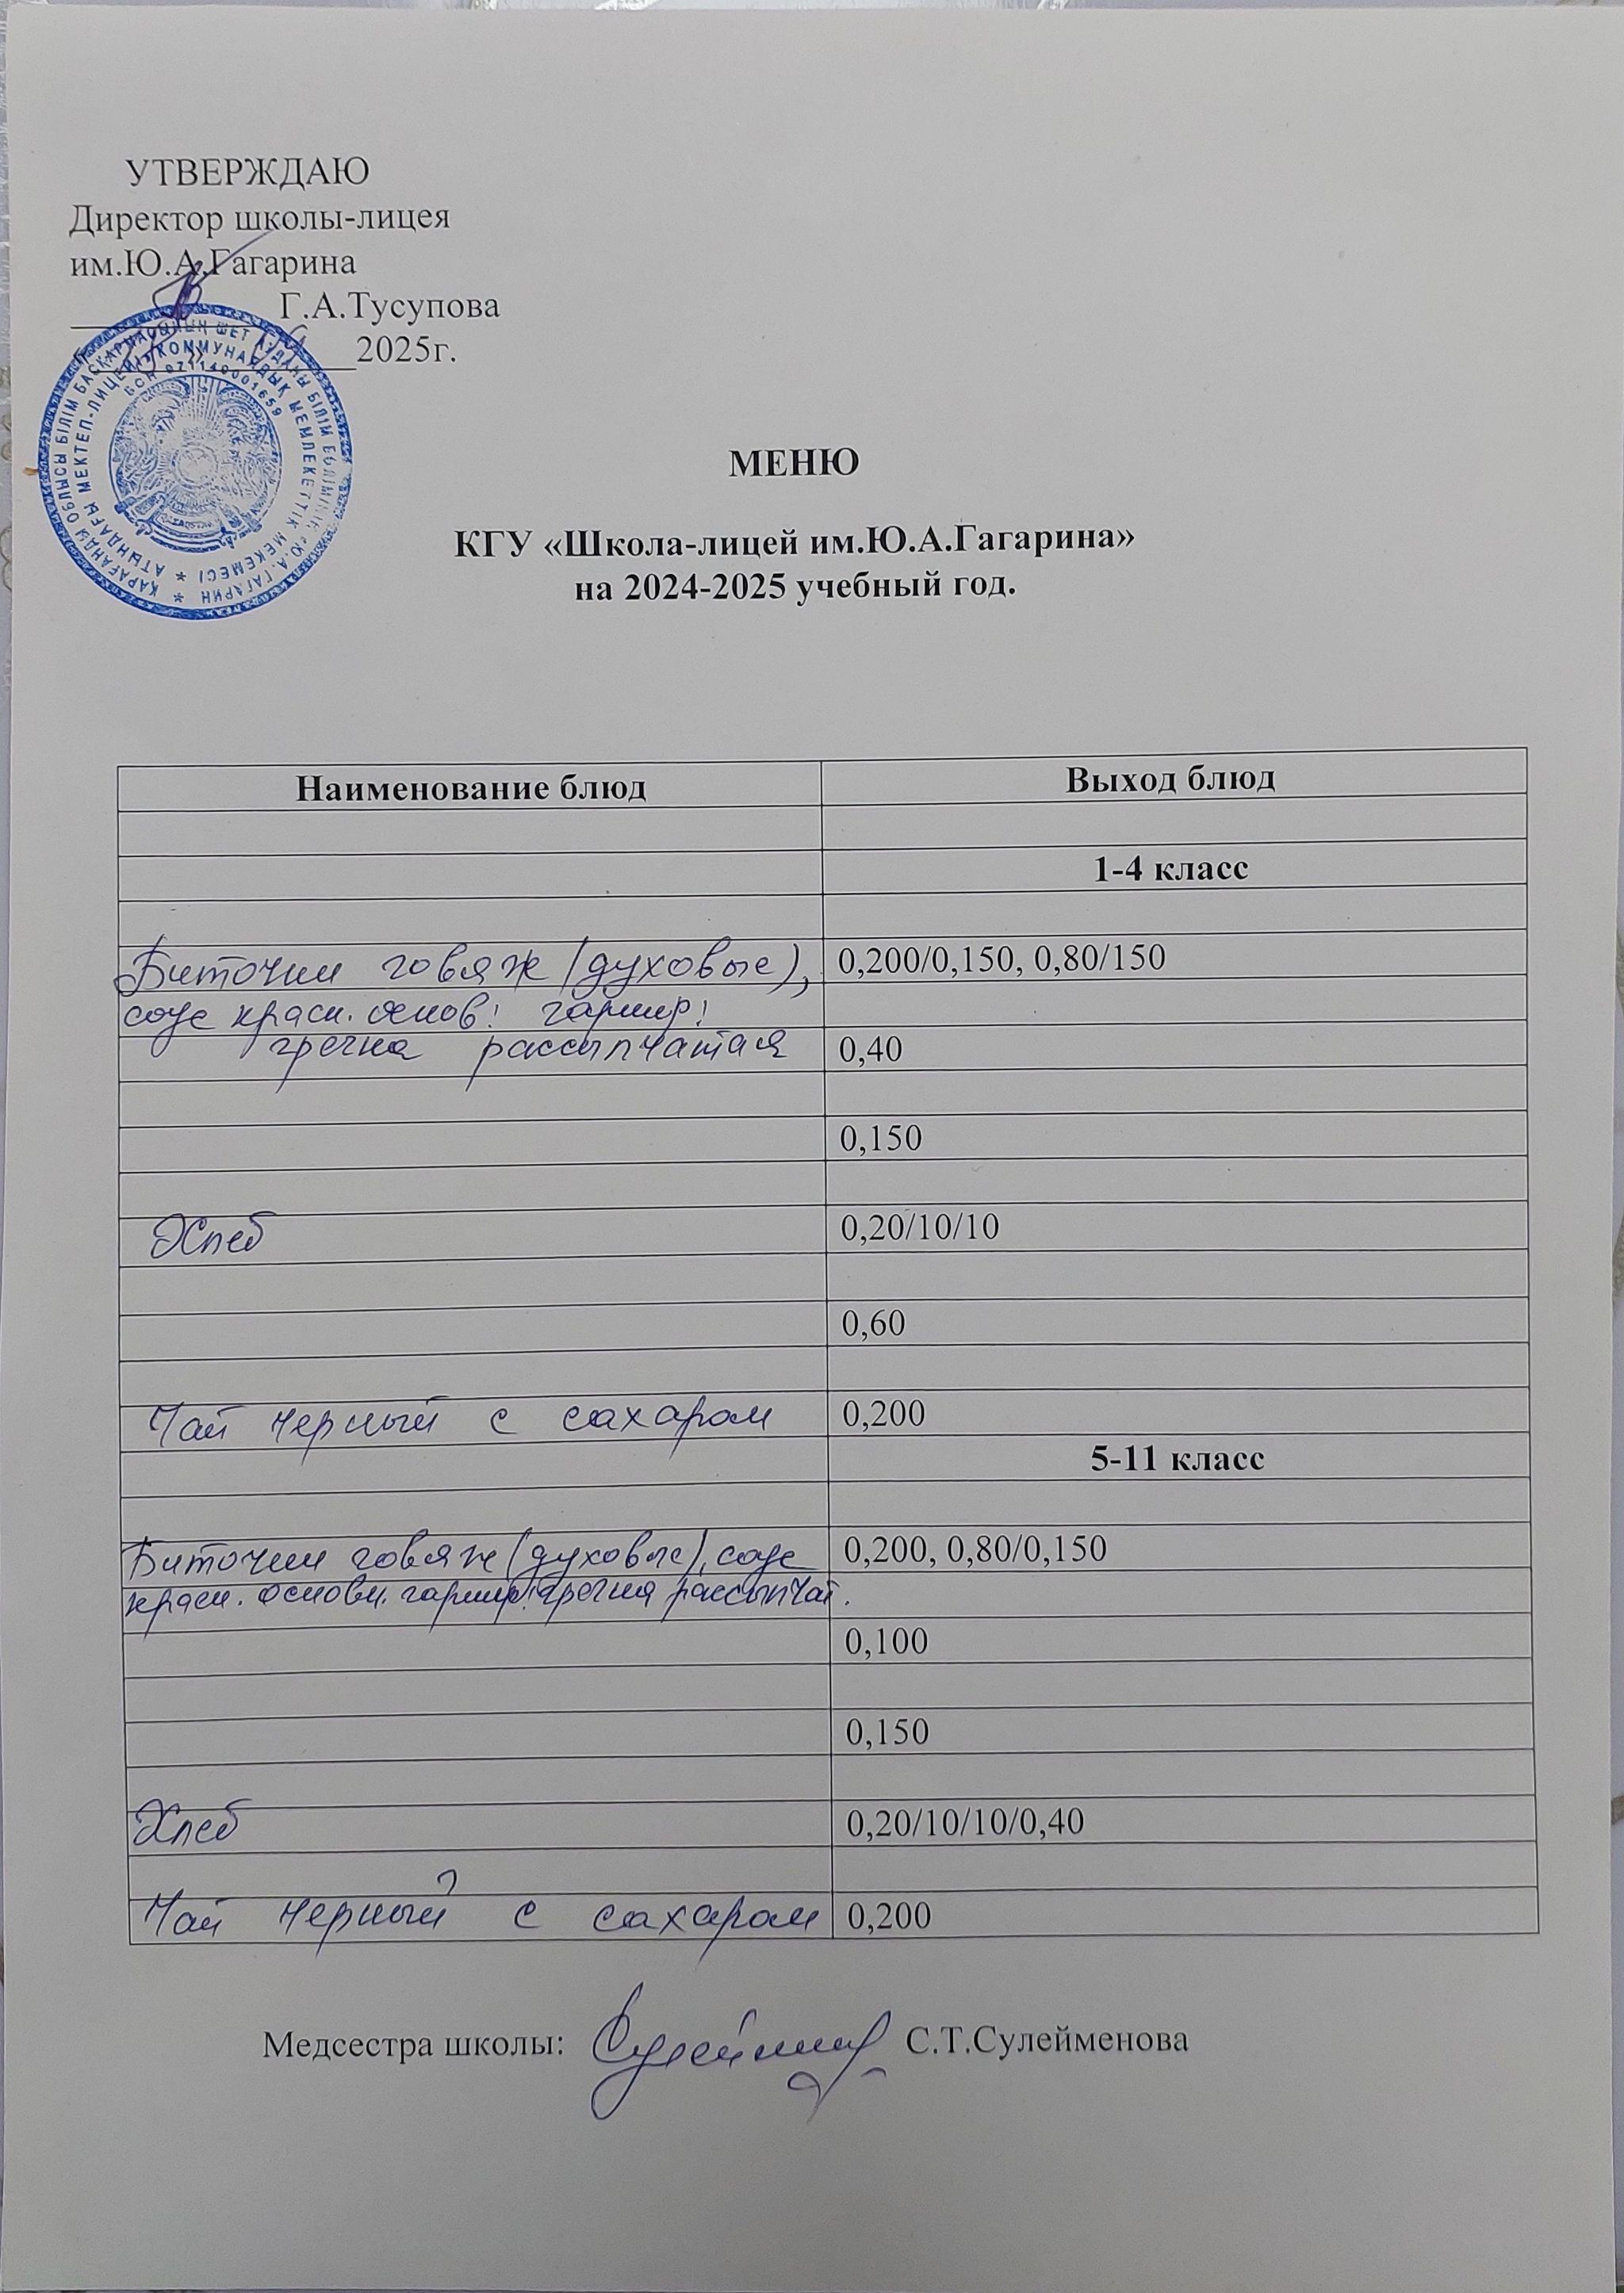 УТВЕРЖДАЮ
Директор школы-лицея
им.Ю.А.Гагарина
Г.А.Тусупова
2025г.
ҚАРАҒАНДЫ ОБЛЫСЫ БІЛІМ БАСҚАРМАСЫНЫҢ ШЕТ АУДАНЫ БІЛІМ БӨЛІМІНІҢ «Ю.А. ГАГАРИН
АТЫНДАҒЫ МЕКТЕП-ЛИЦЕЙІ» КОММУНАЛДЫҚ МЕМЛЕКЕТТІК МЕКЕМЕСІ
БСН 971140001659
МЕНЮ
КГУ «Школа-лицей им.Ю.А.Гагарина»
на 2024-2025 учебный год.
Наименование блюд Выход блюд
1-4 класс
Биточки говяж (духовые), 0,200/0,150, 0,80/150
соус красн. основ: гарнир:
гречка рассыпчатая 0,40
0,150
Хлеб 0,20/10/10
0,60
Чай черный с сахаром 0,200
5-11 класс
Биточки говяж (духовые), соус 0,200, 0,80/0,150
красн. основн. гарнир: гречка рассыпчат.
0,100
0,150
Хлеб 0,20/10/10/0,40
Чай черный с сахаром 0,200
Медсестра школы: С.Т.Сулейменова